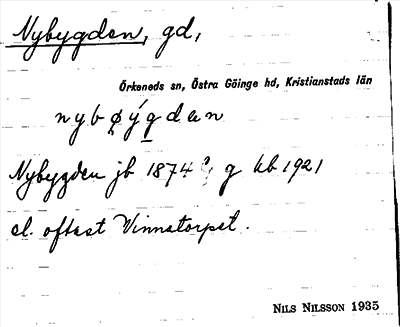 Nybygden, gd,
Örkeneds sn, Östra Göinge hd, Kristianstads län
nybøýgdan
Nybygden jb 1874 g kb 1921
el. oftast Vinnatorpet.
NILS NILSSON 1935